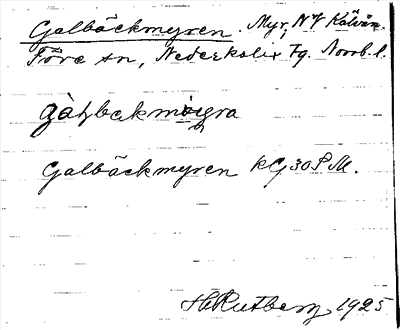 Galbäckmyren. Myr, NV Kälvån.
Töre sn, Nederkalix tg. Norrb. l.
Galbäckmyren kG 30 S M.
H Rutberg 1925